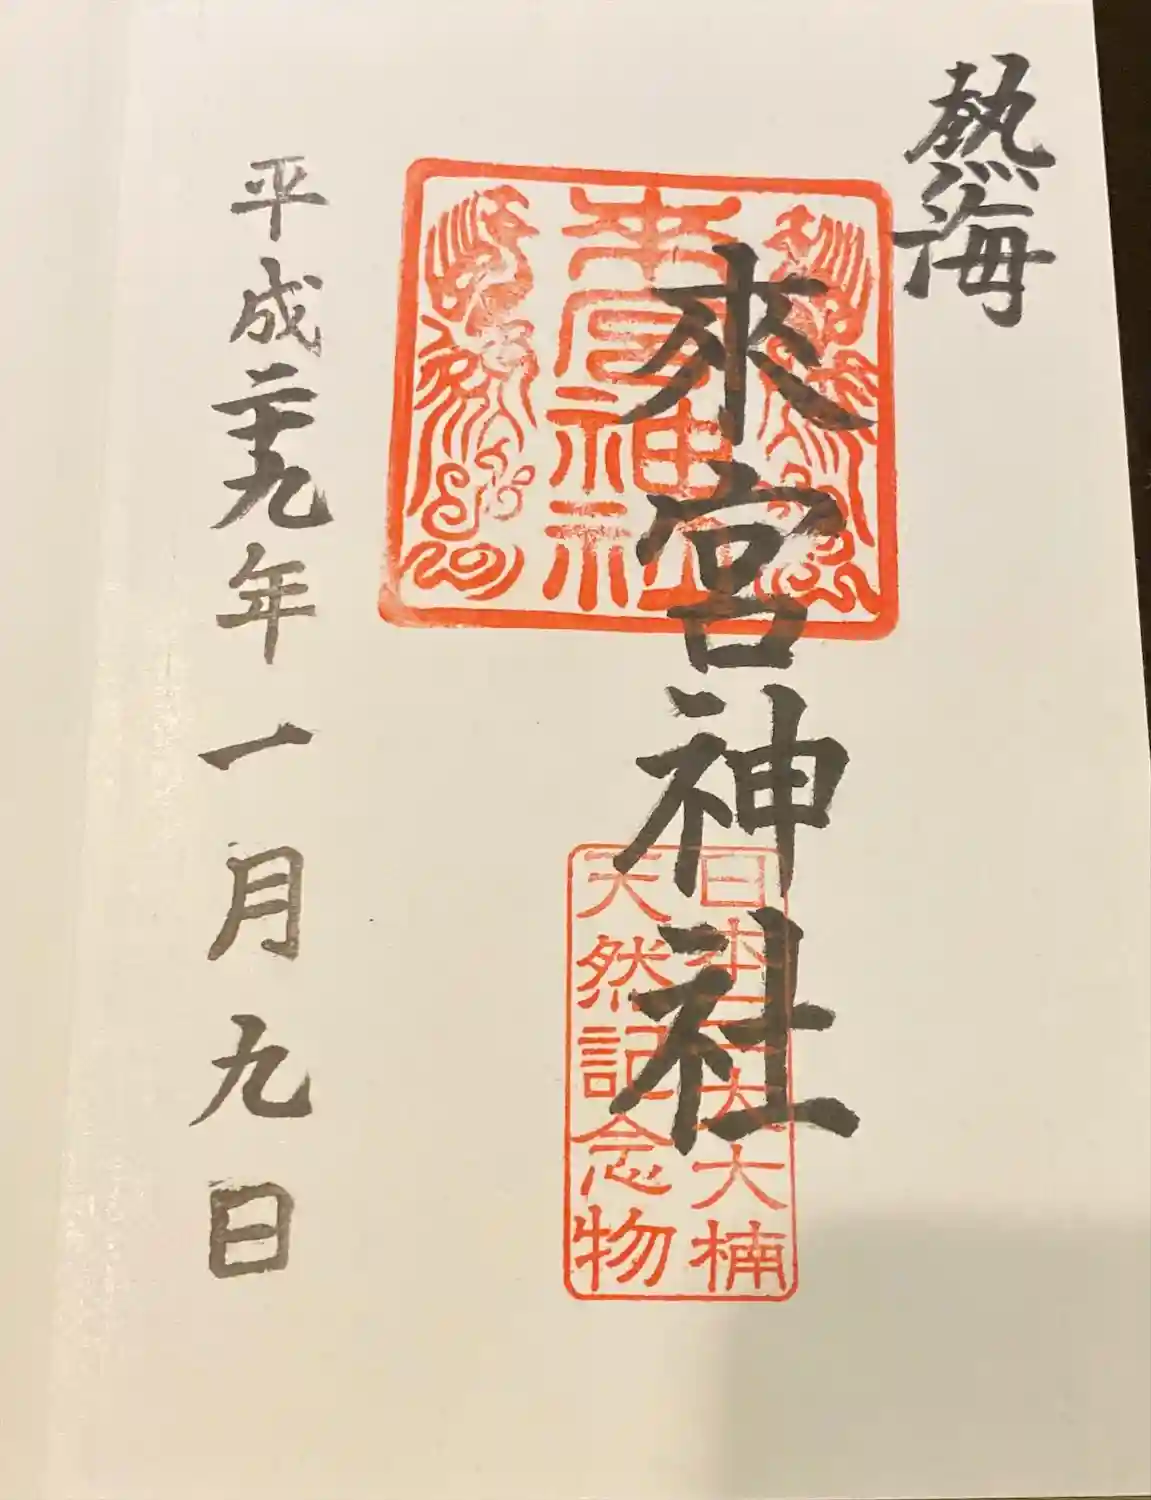 熱海
來宮神社
來宮神社
日本三大大楠
天然記念物
平成二十九年
一月九日